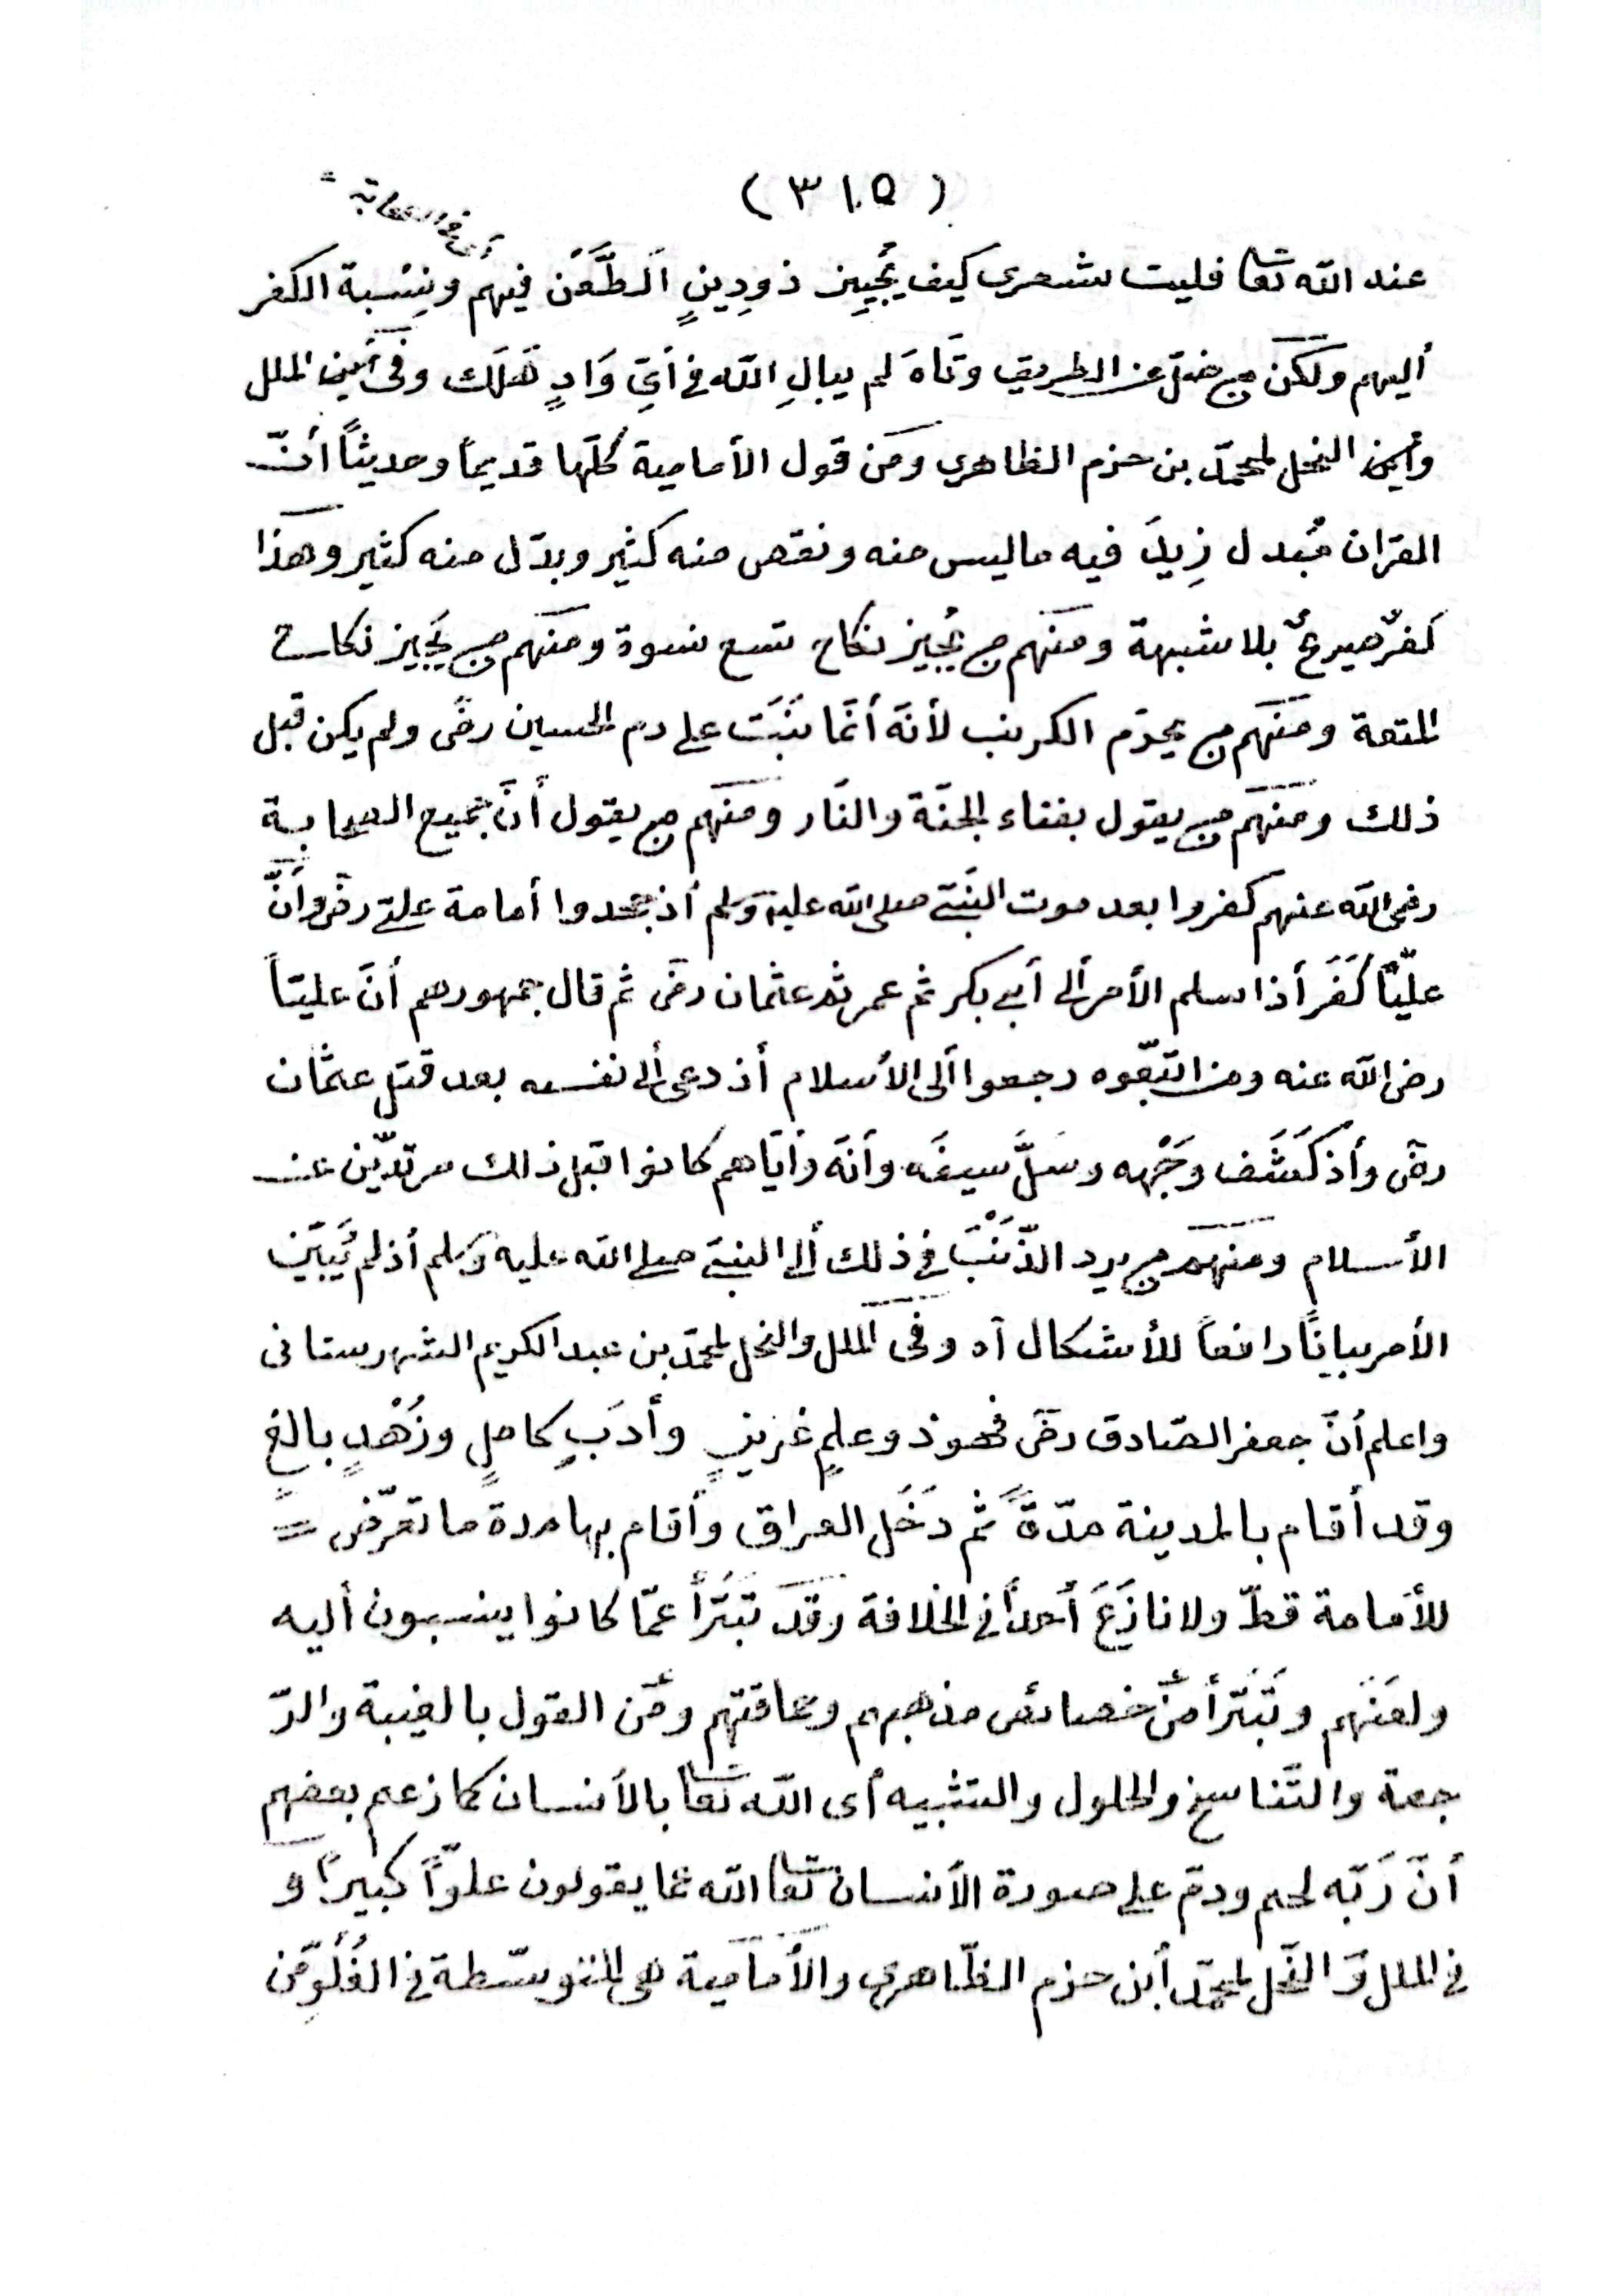 (٣١٥)
أى فى الصحابة =
عند الله تعا فليت شعرى كيف يُجِيز ذودِينٍ اَلطَّعَن فيهم ونِسْبة الكفر
أليهم ولكن من ضلّ عن الطريق وتَاهَ لم يبالِ الله فى أَىِّ وَادٍ هَلَك وفى الملل
والنحل لمحمّد بن حزم الظاهرى ومن قول الأمامية كلّها قديماً وحديثاً أنّ
القرأن مُبدل زِيدَ فيه ماليس منه ونقص منه كثير وبدّل منه كثير وهذا
كفرٌ صريحٌ بلا شبهة ومنهم من يُجيز نكاح تسع نسوة ومنهم من يُجيز نكاح
المتعة ومنهم من يحرّم الكرنب لأنّه أنّما نَبَتَ على دم الحسين رضى ولم يكن قبل
ذلك ومنهم من يقول بفناء الجنّة والنّار ومنهم من يقول أنَّ جميع الصحابة
رضى الله عنهم كفروا بعد موت النبىّ صلى الله عليه وسلم أذ جحدوا أمامة علىّ رضى وأنَّ
عليّاً كَفَر أذا سلم الأمر ألى أبى بكر ثم عمر ثم عثمان رضى ثم قال جمهورهم أنَّ عليّاً
رضى الله عنه ومن اتبّعوه رجعوا ألى الأسلام أذ دعى ألى نفسه بعد قتل عثمان
رضى وأذ كَشَف وَجْهه وسَلَّ سيفَه وأنّه وأيّاهم كانوا قبل ذلك مرتدّين عن
الأسلام ومنهم من يرد الذّنْبَ فى ذلك ألى النبىّ صلى الله عليه وسلم أذ لم يُبيّن
الأمر بياناً رافعاً للأشكال آه وفى الملل والنحل لمحمّد بن عبد الكريم الشهرستانى
واعلم أنّ جعفر الصّادق رضى فهو ذو علمٍ غزيزٍ وأدَبٍ كاملٍ وزُهْدٍ بالغٍ
وقد أقام بالمدينة مدّةً ثم دَخَل العراق وأقام بها مدة ما تعرّض =
للأمامة قطّ ولا نازَعَ أحداً فى الخلافة وقد تَبَرَّأ عمّا كانوا ينسبون أليه
ولعَنَهم وتَبَرّأ من خصائص مذهبهم وحماقتهم ومن القول بالغيبة والرّ
جعة والتّناسخ والحلول والتشبيه أى الله تعا بالأنسان كما زعم بعضهم
أنّ رَبّه لحم ودمّ على صورة الأنسان تعا الله عما يقولون علوّاً كبيراً و
فى الملل وَ النّحل لمحمّد أبن حزم الظّاهرى والأمامية هى المتوسّطة فى الغُلُوِّ من